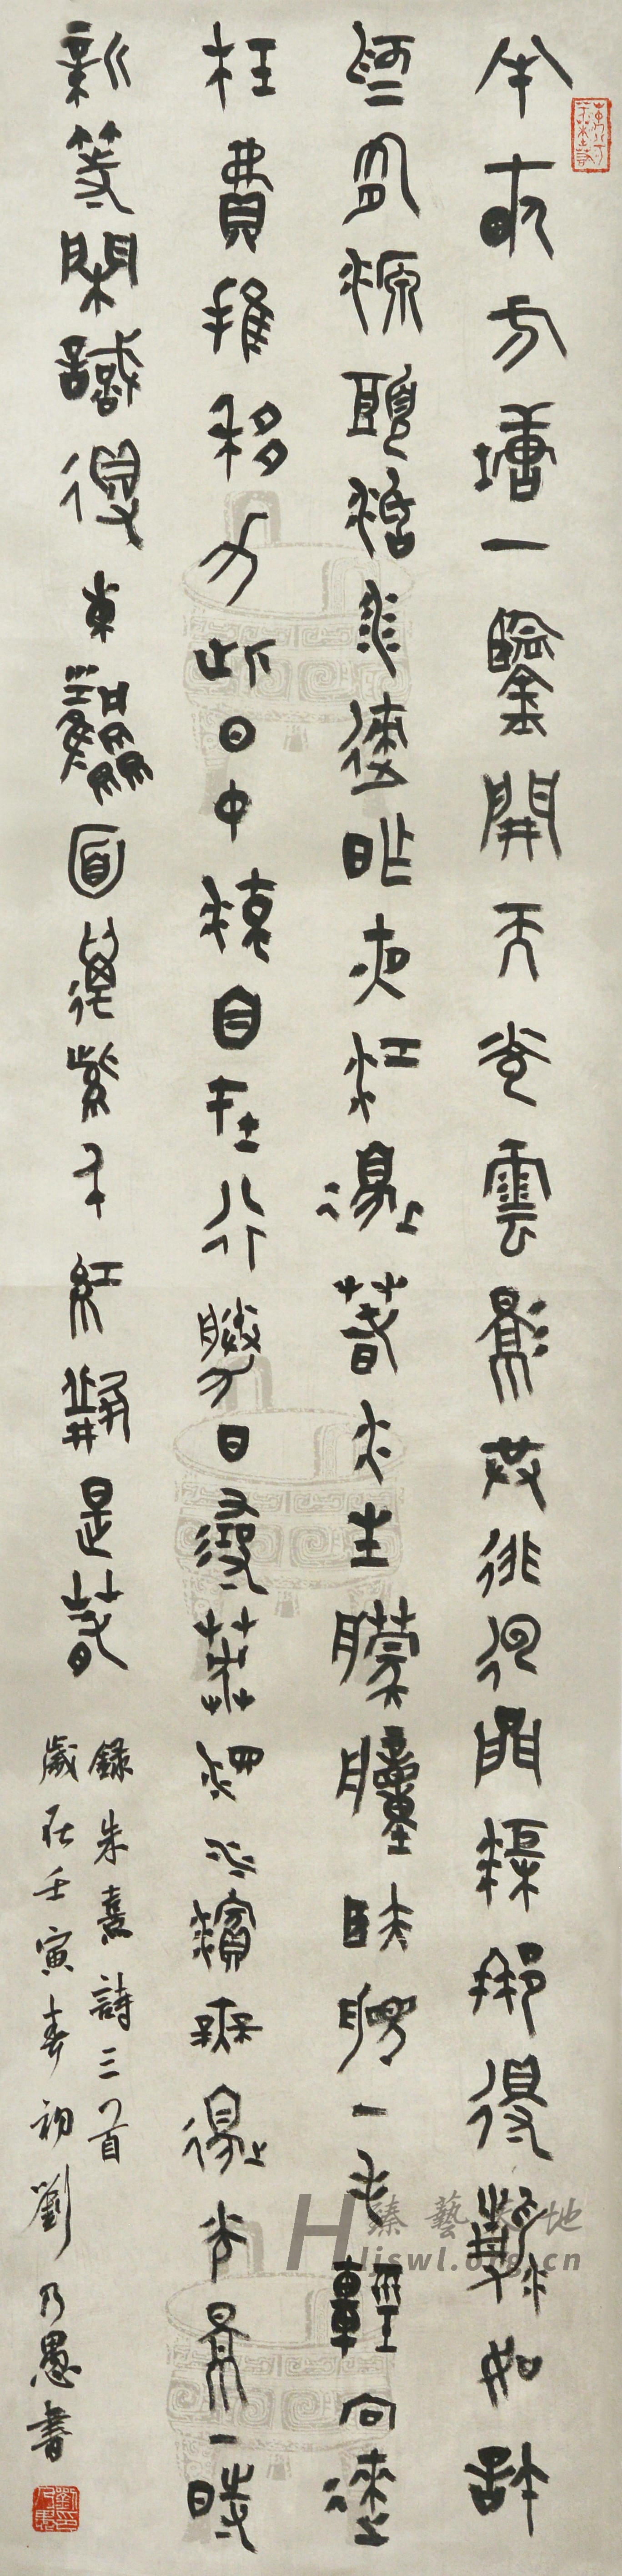 半畝方塘一鑒開天光雲影共徘徊問渠那得清如許
為有源頭活水來昨夜江邊春水生艨艟巨艦一毛輕向來
枉費推移力此日中流自在行勝日尋芳泗水濱無邊光景一時
新等閑識得東風面萬紫千紅總是春
錄朱熹詩三首
歲在壬寅春初劉乃愚書